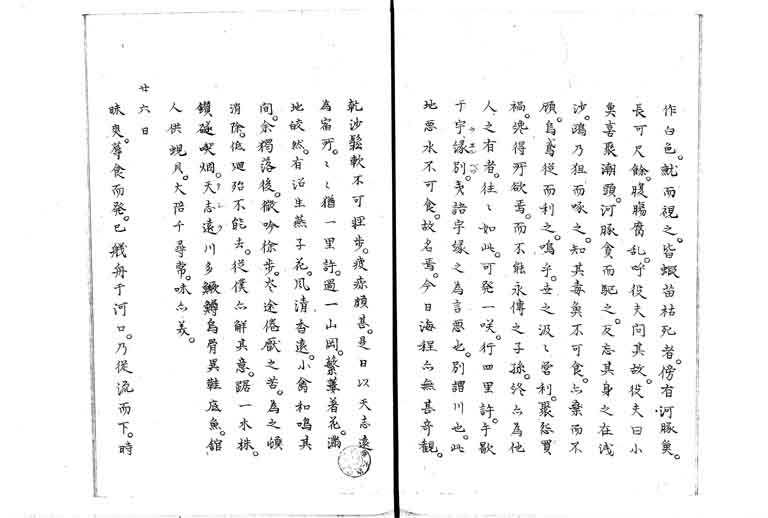 作白色。就而視之。皆蝦苗枯死者。傍有河豚魚。
長可尺餘。腹腸腐乱。呼役夫問其故。役夫曰小
魚喜聚潮頭。河豚貪而馳之。反忘其身之在浅
沙。鴎乃狙而啄之。知其毒魚不可食。亦棄而不
顧。烏鳶從而利之。鳴乎。世之汲〻営利。聚怨買
禍。纔得所欲焉。而不能永傳之子孫。終亦為他
人之有者。往〻如此。可発一咲。行四里許。午歇
于宇縁別。夷語宇縁之為言悪也。別謂川也。此
地悪水不可食。故名焉。今日海程亦無甚奇観。
乾沙鬆軟不可駐歩。疲痧頗甚。是日以天志遠
為宿所。〻〻猶一里許。過一山岡。蘩蔞着花。満
地皎然。有沼生燕子花。風清香遠。小禽和鳴其
間。余獨落後。微吟徐歩。客途倦厭之苦。為之頓
消除。低廻殆不能去。従僕亦解其意。踞一木株。
鑽燧喫烟。天志遠川多鱖鱒烏骨異鞋底魚。舘
人供蜆貝。大陪千尋常。味亦美。
廿六日
昧爽。蓐食而発。已艤舟于河口。乃従流而下。時